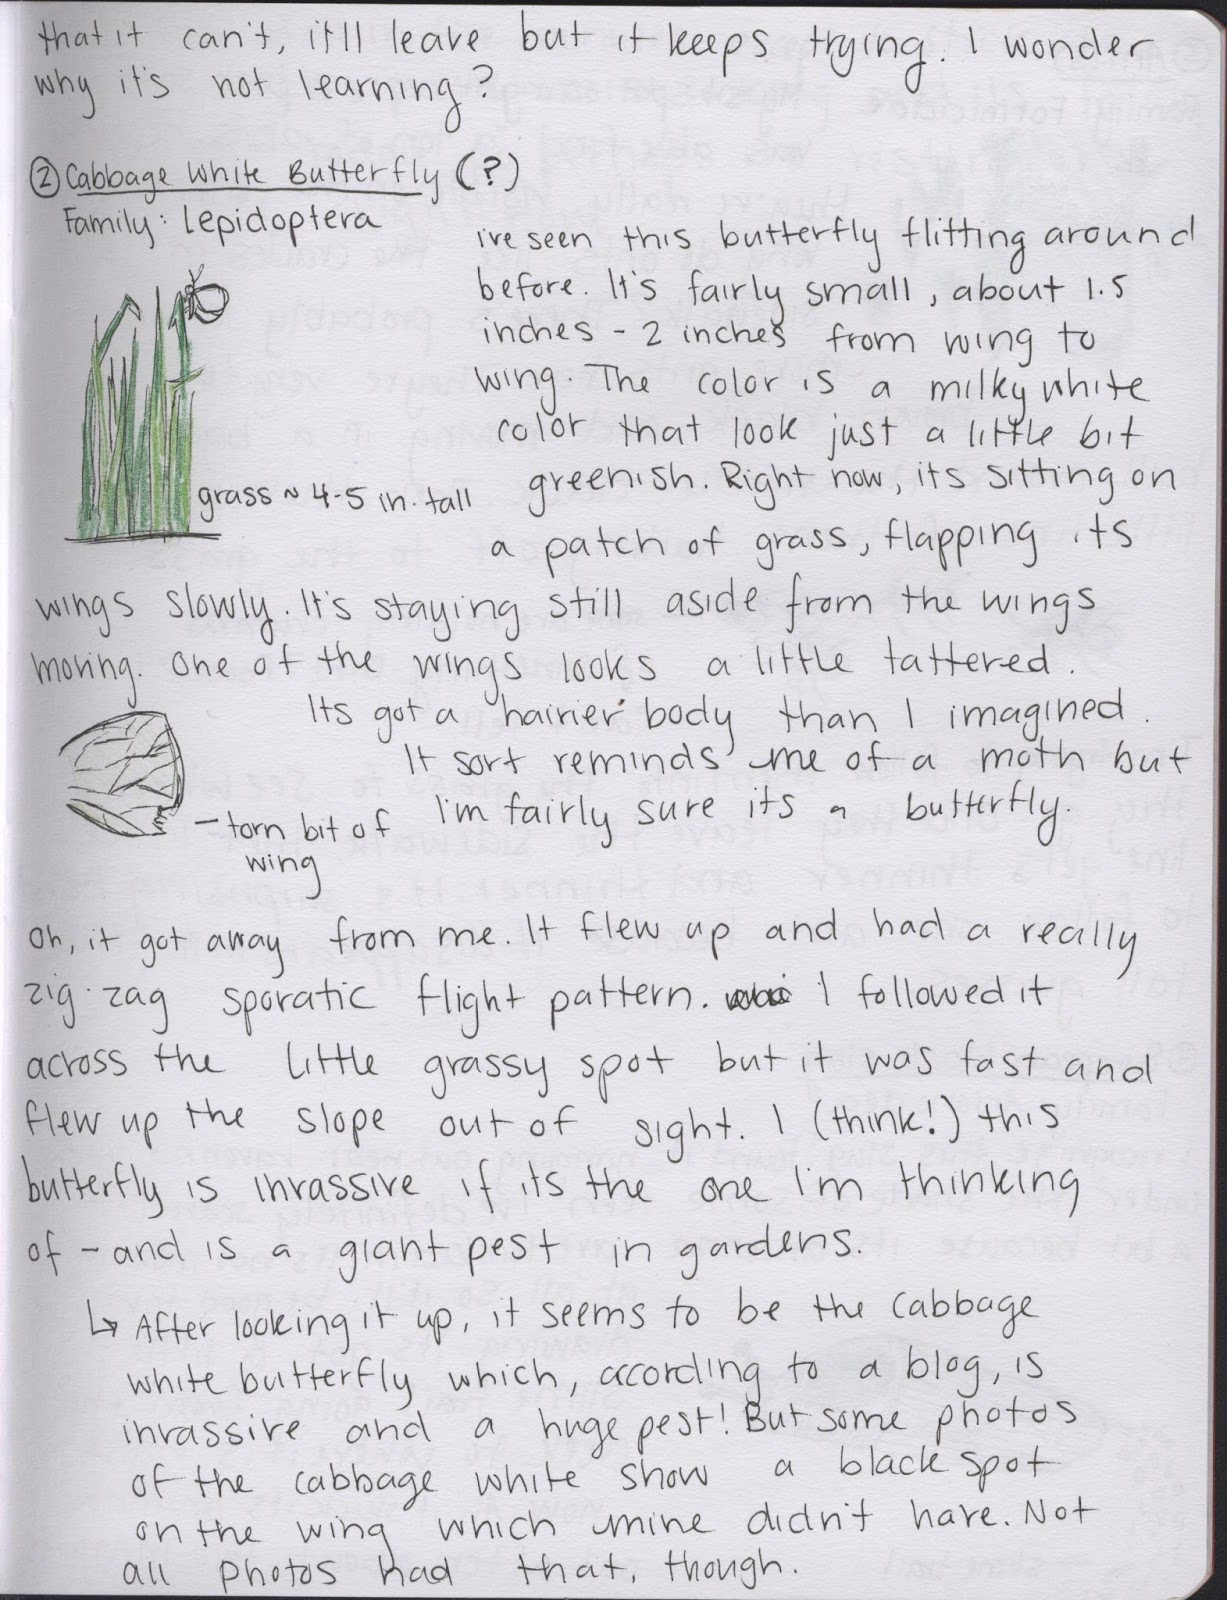 that it can't, it'll leave but it keeps trying. I wonder
why it's not learning?
② Cabbage White Butterfly (?)
Family: Lepidoptera
i've seen this butterfly flitting around
before. It's fairly small, about 1.5
inches - 2 inches from wing to
wing. The color is a milky white
color that look just a little bit
greenish. Right now, its sitting on
grass ~ 4-5 in. tall
a patch of grass, flapping its
wings slowly. It's staying still aside from the wings
moving. One of the wings looks a little tattered.
Its got a hairier body than I imagined.
It sort reminds me of a moth but
I'm fairly sure its a butterfly.
- torn bit of
wing
Oh, it got away from me. It flew up and had a really
zig-zag sporatic flight pattern. I followed it
across the little grassy spot but it was fast and
flew up the slope out of sight. I (think!) this
butterfly is invassive if its the one I'm thinking
of - and is a giant pest in gardens.
↳ After looking it up, it seems to be the cabbage
white butterfly which, according to a blog, is
invassive and a huge pest! But some photos
of the cabbage white show a black spot
on the wing which mine didn't have. Not
all photos had that, though.